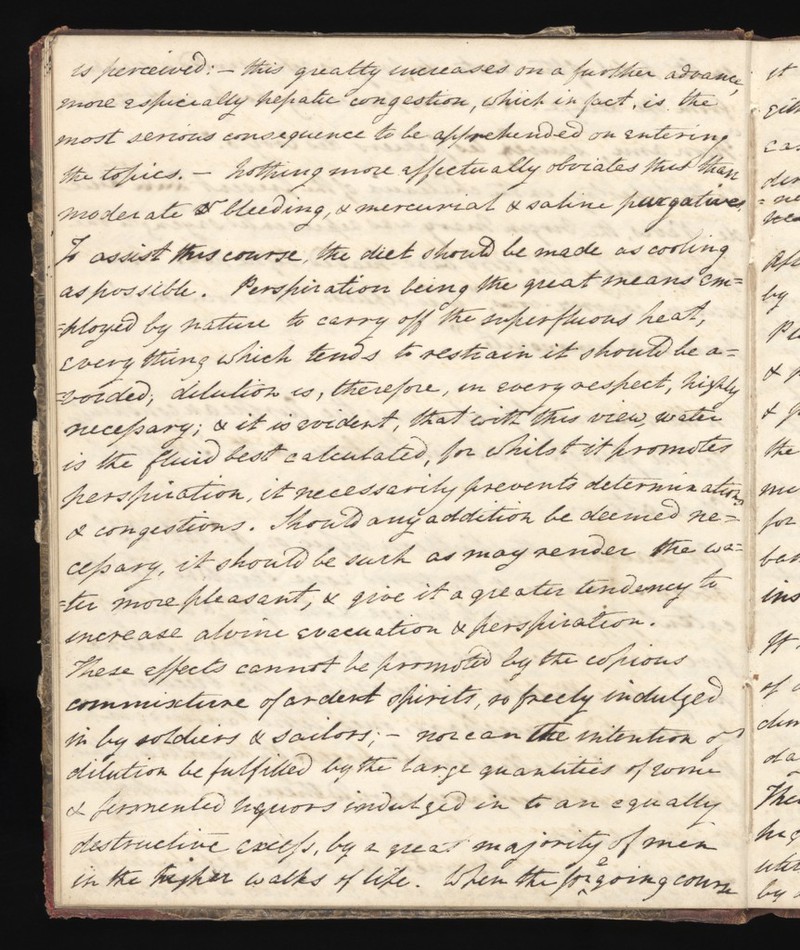 is perceived:- this greatly increases on a further advance,
more espicially hepatic congestion, which in fact, is the
most serious consequence to be apprehended on entering
the topics. - Nothing more effectually obviates this than
moderate bleeding, & mercurial & saline purgatives.
To assist this course, the diet should be made as cooling
as possible. Perspiration being the great means em=
=ployed by nature to carry off the superfluous heat,
every thing which tends to restrain it should be a=
=voided; dilution is, therefore, in every respect, highly
necessary; & it is evident, that with this view, water
is the fluid best calculated, for whilst it promotes
perspiration, it necessarily prevents determinations
& congestions. Should any addition be deemed ne=
cessary, it should be such as may render the wa=
=ter more pleasant, & give it a greater tendency to
increase alvine evacuation & perspiration.
These effects cannot be promoted by the copious
commixture of ardent spirits, so freely indulged
in by soldiers & sailors; - nor can the intention of
dilution be fulfilled by the large quantities of wine
& fermented liquors indulged in to an equally
destructive excess, by a great majority of men
in the higher walks of life. When the foregoing course
it
by
&
&
the
for
It
of
by